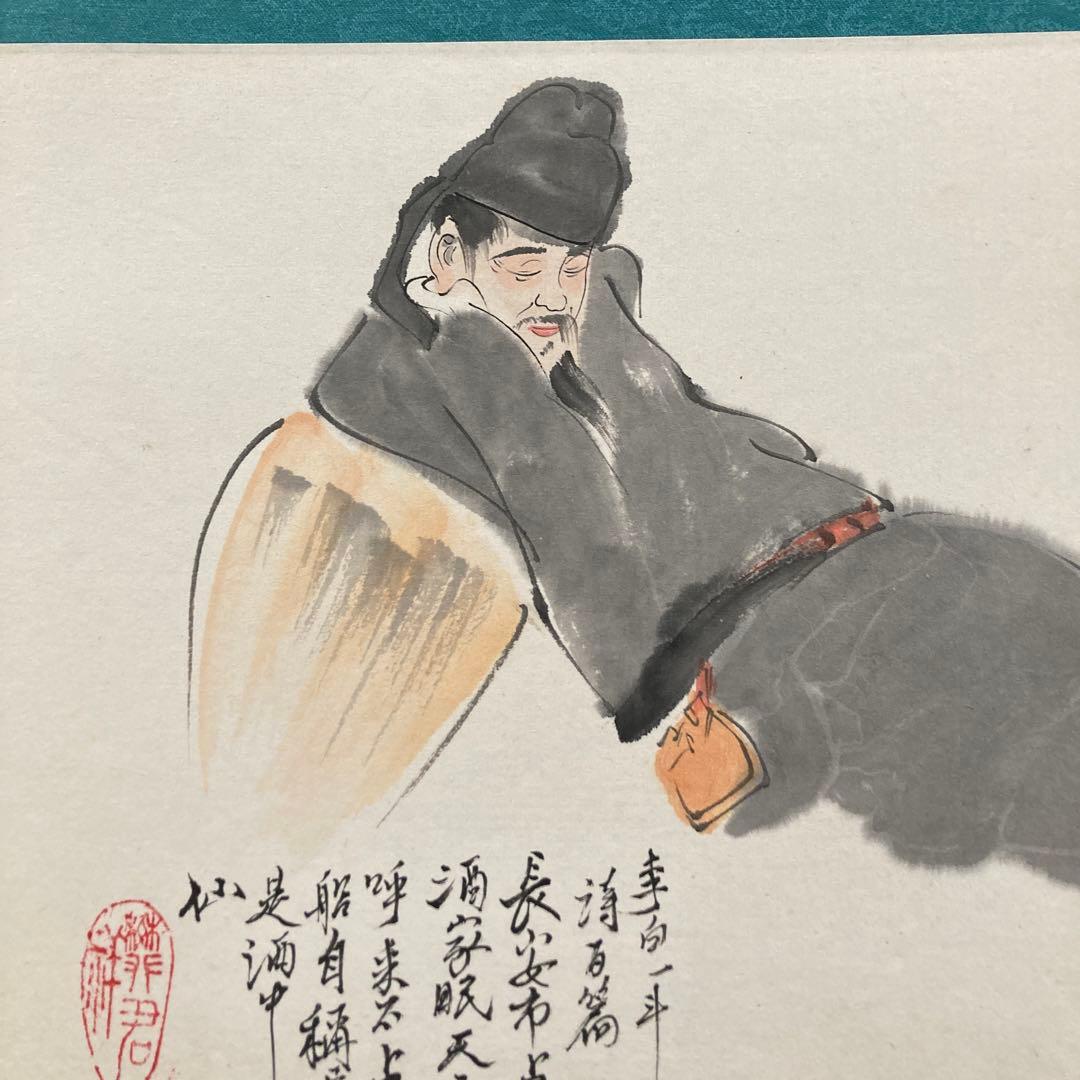 李白一斗
詩百篇
長安市上
酒家眠天
呼来不上
船自稱
是酒中
仙